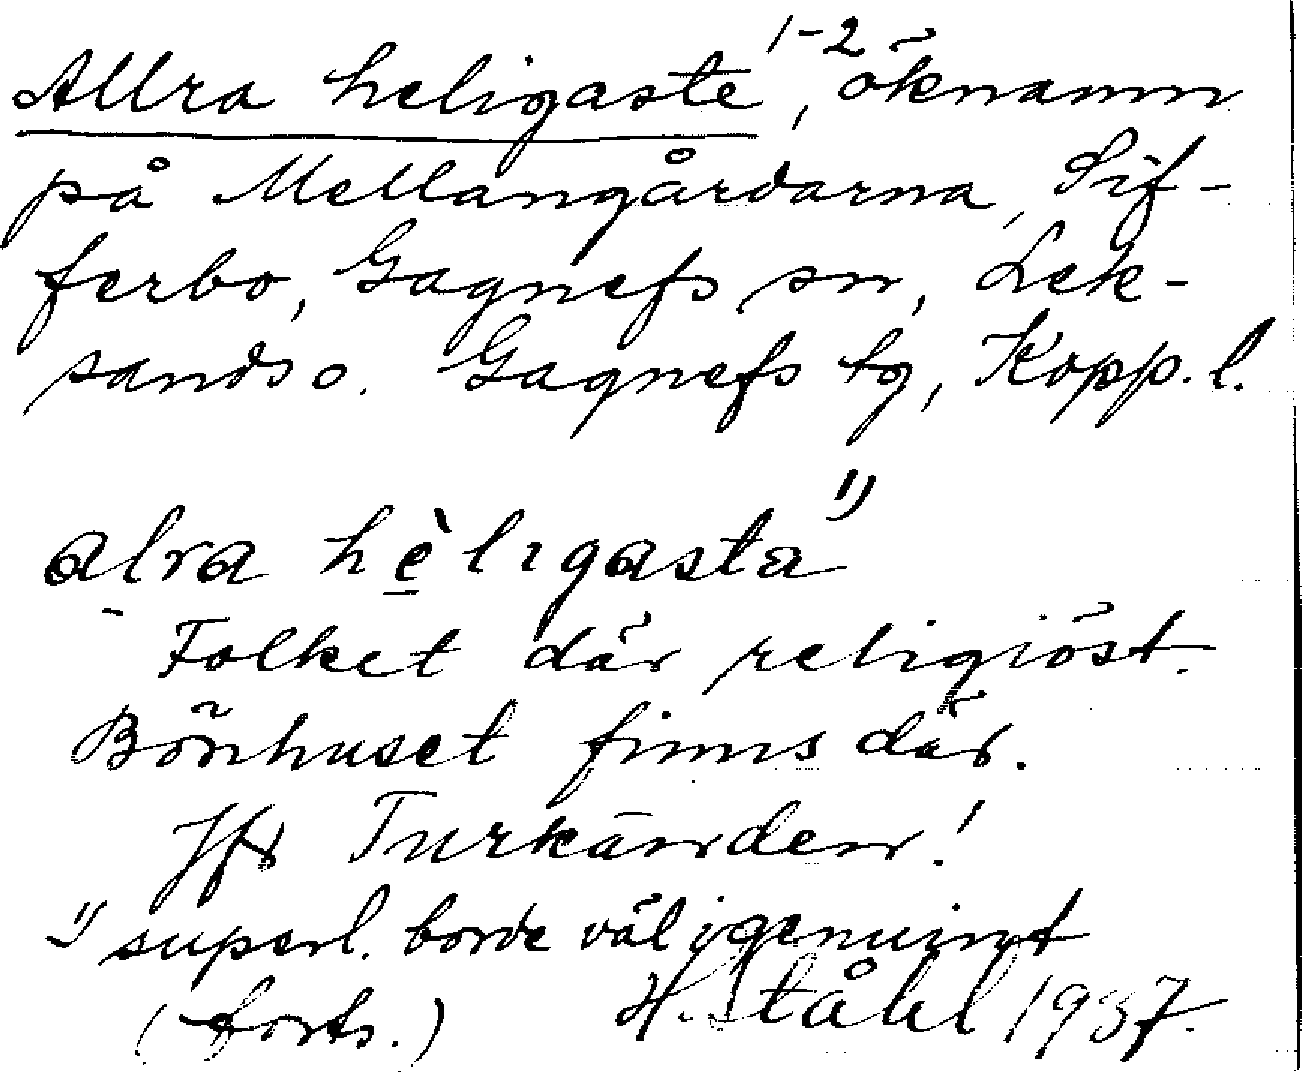 Allra heligaste 1-2, öknamn
på Mellangårdarna, Sif-
ferbo, Gagnefs sn, Lek-
sands o. Gagnefs tg, Kopp. l.
alra hèligasta 1)
Folket där religiöst.
Bönhuset finns där.
Jfr Turkänden!
1) superl. borde väl i genuint
(forts.) H. Ståhl 1937.